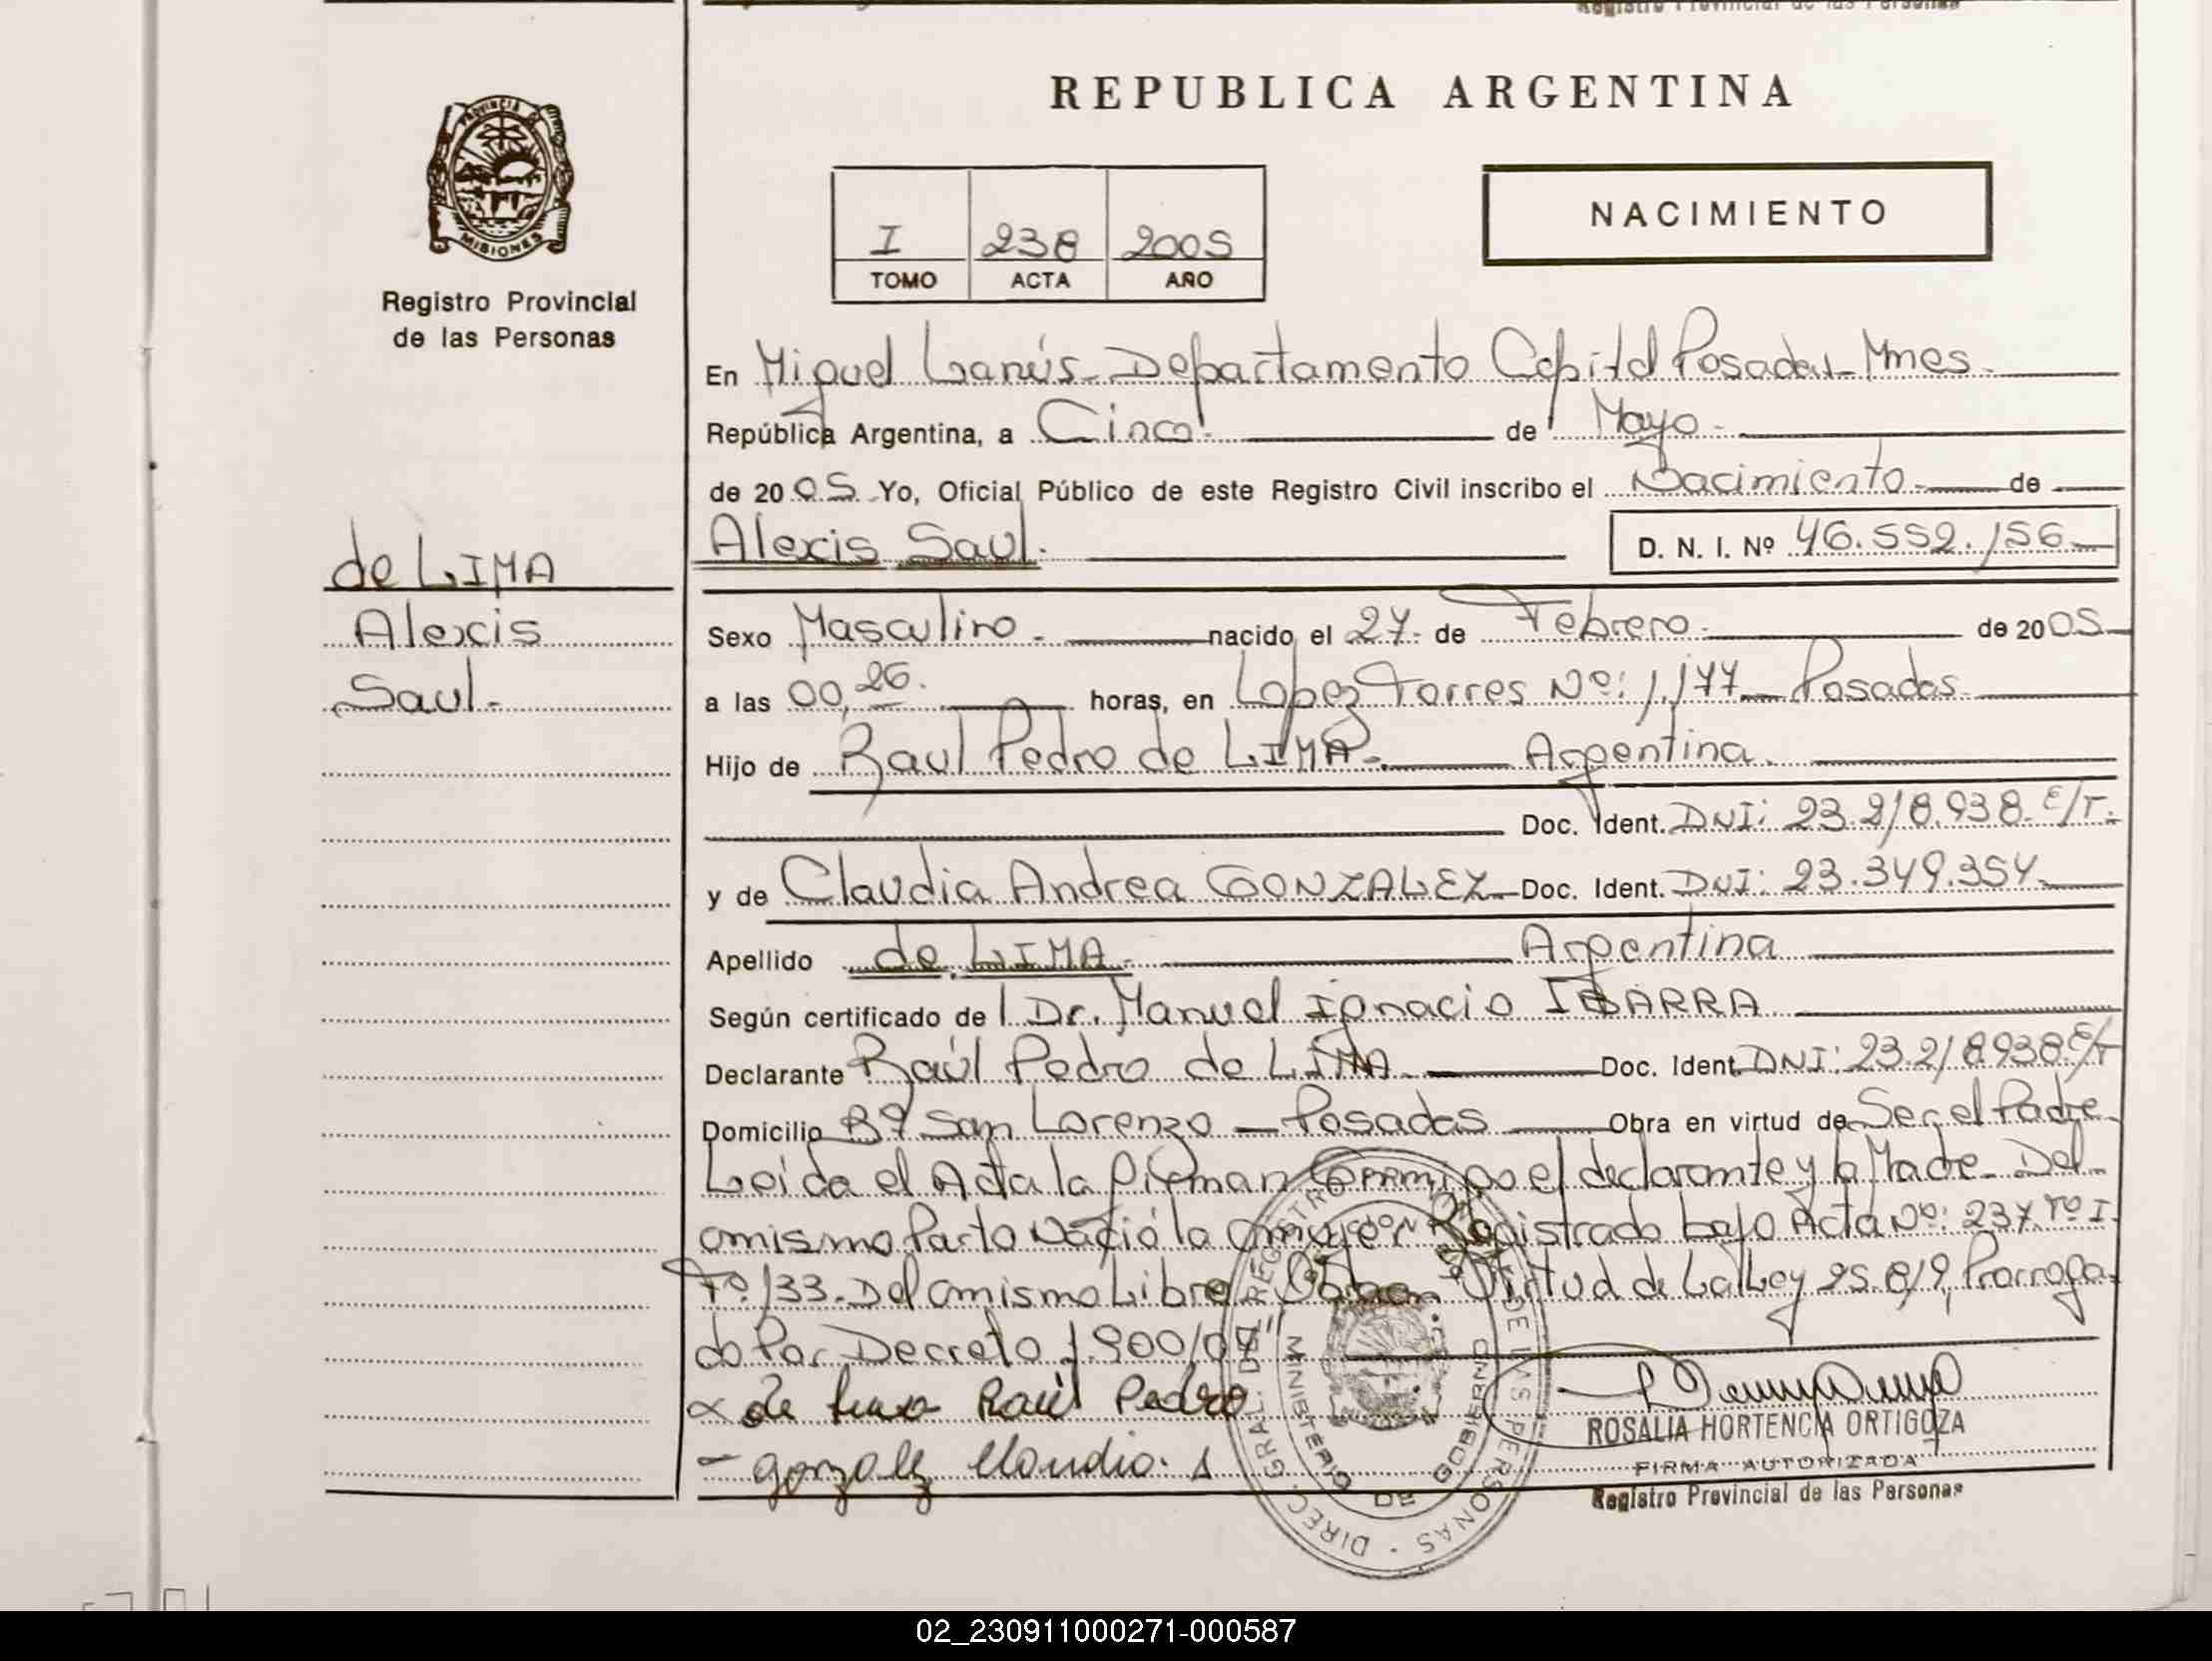 REPUBLICA ARGENTINA
PROVINCIA DE MISIONES
Registro Provincial
de las Personas
I 238 2005
TOMO ACTA AÑO
NACIMIENTO
En Miguel Lanús - Departamento Capital Posadas - Mnes.
República Argentina, a Cinco de Mayo.
de 2005 Yo, Oficial Público de este Registro Civil inscribo el Nacimiento de
Alexis Saul. D. N. I. Nº 46.552.156
de LIMA
Alexis
Saul.
Sexo Masculino. nacido el 27 de Febrero. de 2005
a las 00,26. horas, en Lopez Torres Nº: 1.177 Posadas
Hijo de Raul Pedro de LIMA. Argentina.
Doc. Ident. DNI: 23.218.938 E/T.
y de Claudia Andrea GONZALEZ Doc. Ident. DNI: 23.349.354
Apellido de LIMA. Argentina
Según certificado de l Dr. Manuel Ignacio IBARRA
Declarante Raúl Pedro de LIMA Doc. Ident. DNI: 23.218938 E/T
Domicilio Bº San Lorenzo - Posadas Obra en virtud de Ser el Padre
Leida el Acta la firman Conmigo el declarante y la Madre. Del
mismo Parto Nació la mujer Registrado bajo Acta Nº: 237 Tº I
Fº 133. Del mismo Libro Virtud de La Ley 25.819, Prorroga
do Por Decreto 1.900/04"
x de Lima Raúl Pedro
- gonzalez Claudia. A
ROSALIA HORTENCIA ORTIGOZA
FIRMA AUTORIZADA
Registro Provincial de las Personas
DIREC. GRAL. DEL REGISTRO DE LAS PERSONAS
MINISTERIO DE GOBIERNO
02_230911000271-000587